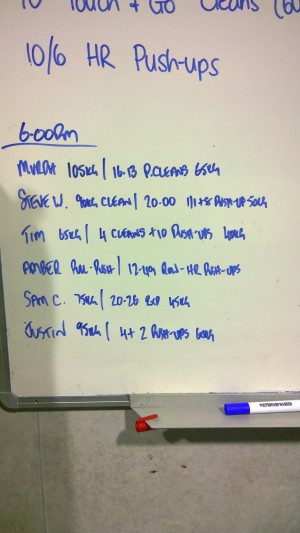 10 Touch + Go Cleans (60
10/6 HR Push-ups
6:00pm
105KG | 16-13 P.CLEANS 65KG
STEVE W. 90KG CLEAN | 20:00 PUSH-UP 50KG
TIM 65KG | 4 CLEANS +10 PUSH-UPS 40KG
AMBER | 12:49 ROW-HR PUSH-UPS
SAM C. 75KG | 20-26 45KG
JUSTIN 95KG | 4+2 PUSH-UPS 60KG